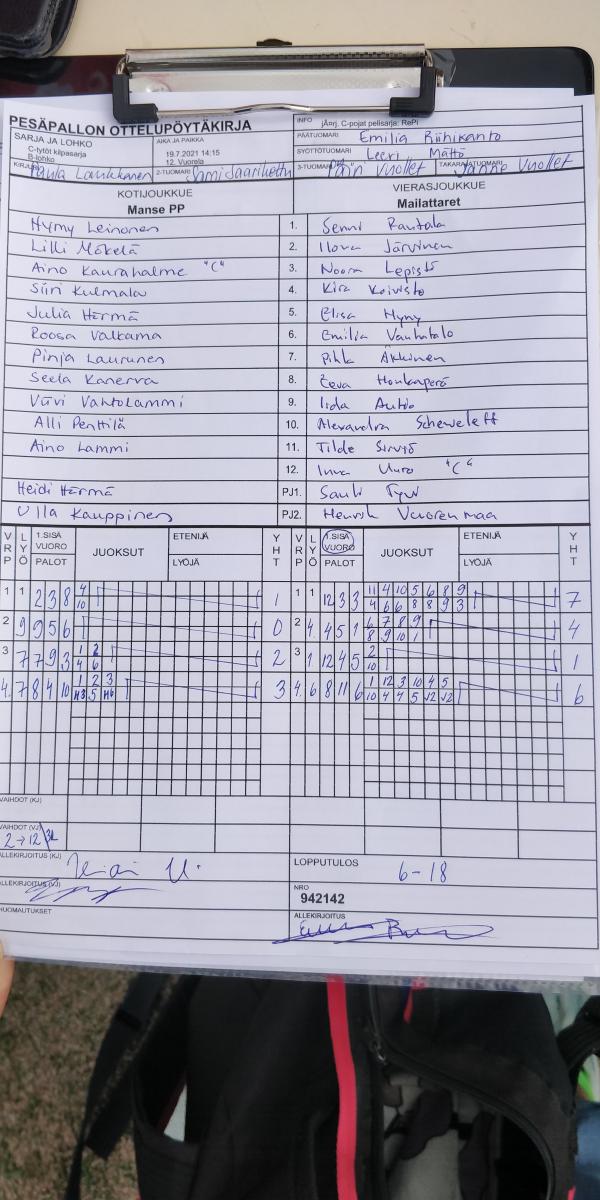 PESÄPALLON OTTELUPÖYTÄKIRJA
INFO jÄrj. C-pojat pelisarja: RePi
SARJA JA LOHKO C-tytöt kilpasarja B-lohko
AIKA JA PAIKKA 19.7.2021 14:15 12. Vuorela
PÄÄTUOMARI Emilia Riihikanto
SYÖTTÖTUOMARI Leeri Mättö
Paula Laukkanen 2-TUOMARI 3-TUOMARI Päivi Vuollet TAKARAJATUOMARI Janne Vuollet
KOTIJOUKKUE VIERASJOUKKUE
Manse PP Mailattaret
Hymy Leinonen 1. Senni Rautala
Lilli Mäkelä 2. Ilona Järvinen
Aino Kaurahalme "C" 3. Noora Lepistö
Siiri Kulmala 4. Kira Koivisto
Julia Härmä 5. Elisa Hyny
Roosa Valkama 6. Emilia Vanhatalo
Pinja Laurunen 7. Pihla Äkkinen
Seela Kanerva 8. Eeva Honkaperä
Viivi Vahtolammi 9. Iida Autio
Alli Penttilä 10. Alexandra Scheweleff
Aino Lammi 11. Tilde Sirviö
12. "C"
Heidi Härmä PJ1. Sauli
Ulla Kauppinen PJ2. Henrik Vuorenmaa
VRP LYÖ 1.SISÄ VUORO PALOT JUOKSUT ETENIJÄ LYÖJÄ YHT VRP LYÖ 1.SISÄ VUORO PALOT JUOKSUT ETENIJÄ LYÖJÄ YHT
4 11 4 10 5 6 8 9
1 1 2 3 8 10 1 1 1 12 3 3 4 6 6 8 8 9 3 7
6 7 8 9
2 9 9 5 6 0 2 4 4 5 1 8 9 10 1 4
1 2 2
3 7 7 9 3 4 6 2 3 1 12 4 5 10 1
1 2 3 1 12 3 10 4 5
4. 7 8 4 10 5 3 4. 6 8 11 6 10 4 4 5 12 12 6
VAIHDOT (KJ)
VAIHDOT (VJ)
2→12
ALLEKIRJOITUS (KJ) LOPPUTULOS 6-18
ALLEKIRJOITUS (VJ) NRO
942142
HUOMAUTUKSET ALLEKIRJOITUS